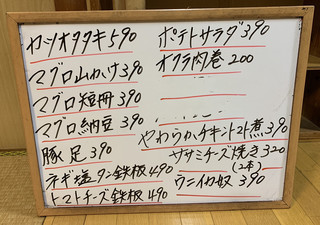 カツオタタキ 590
マグロ山かけ 390
マグロ短冊 390
マグロ納豆 390
豚足 390
ネギ塩タン鉄板 490
トマトチーズ鉄板 490
ポテトサラダ 390
オクラ肉巻 200
やわらかチキントマト煮 390
ササミチーズ焼き 320
(2本)
ウニイカ奴 390